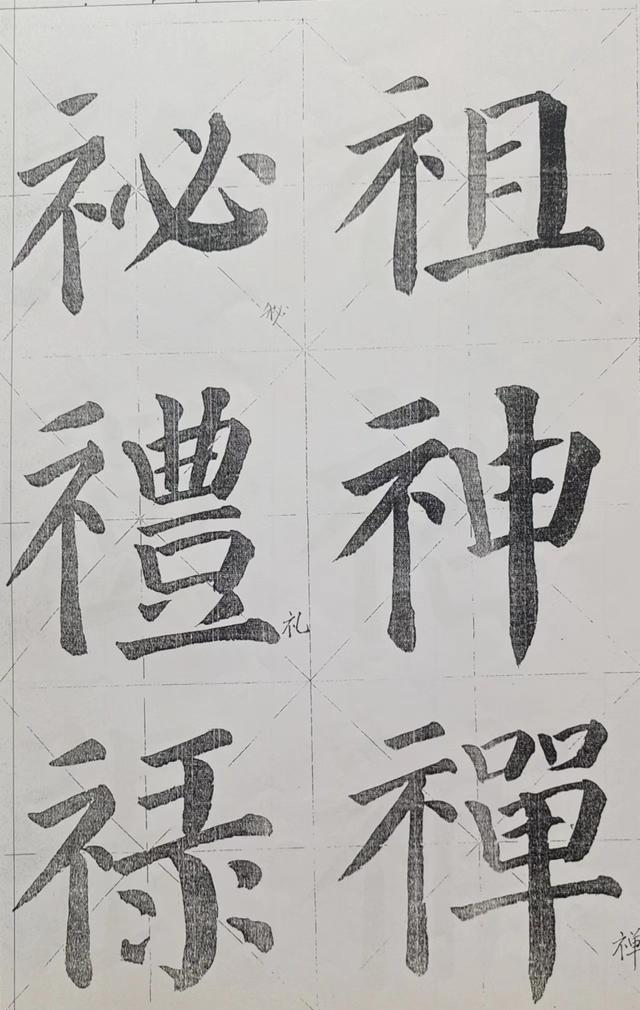 祖神禪禅
祕秘禮礼禄